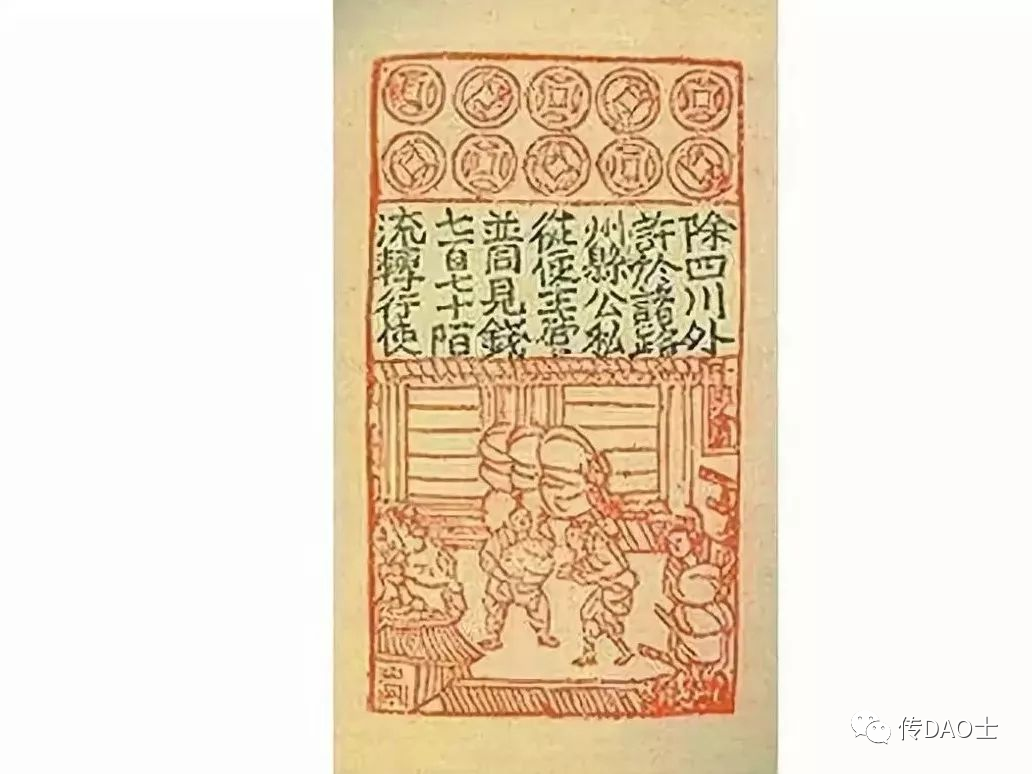 除四川外
許於諸路
州縣公私
從便主管
並同見錢
七百七十陌
流轉行使
传DAO士